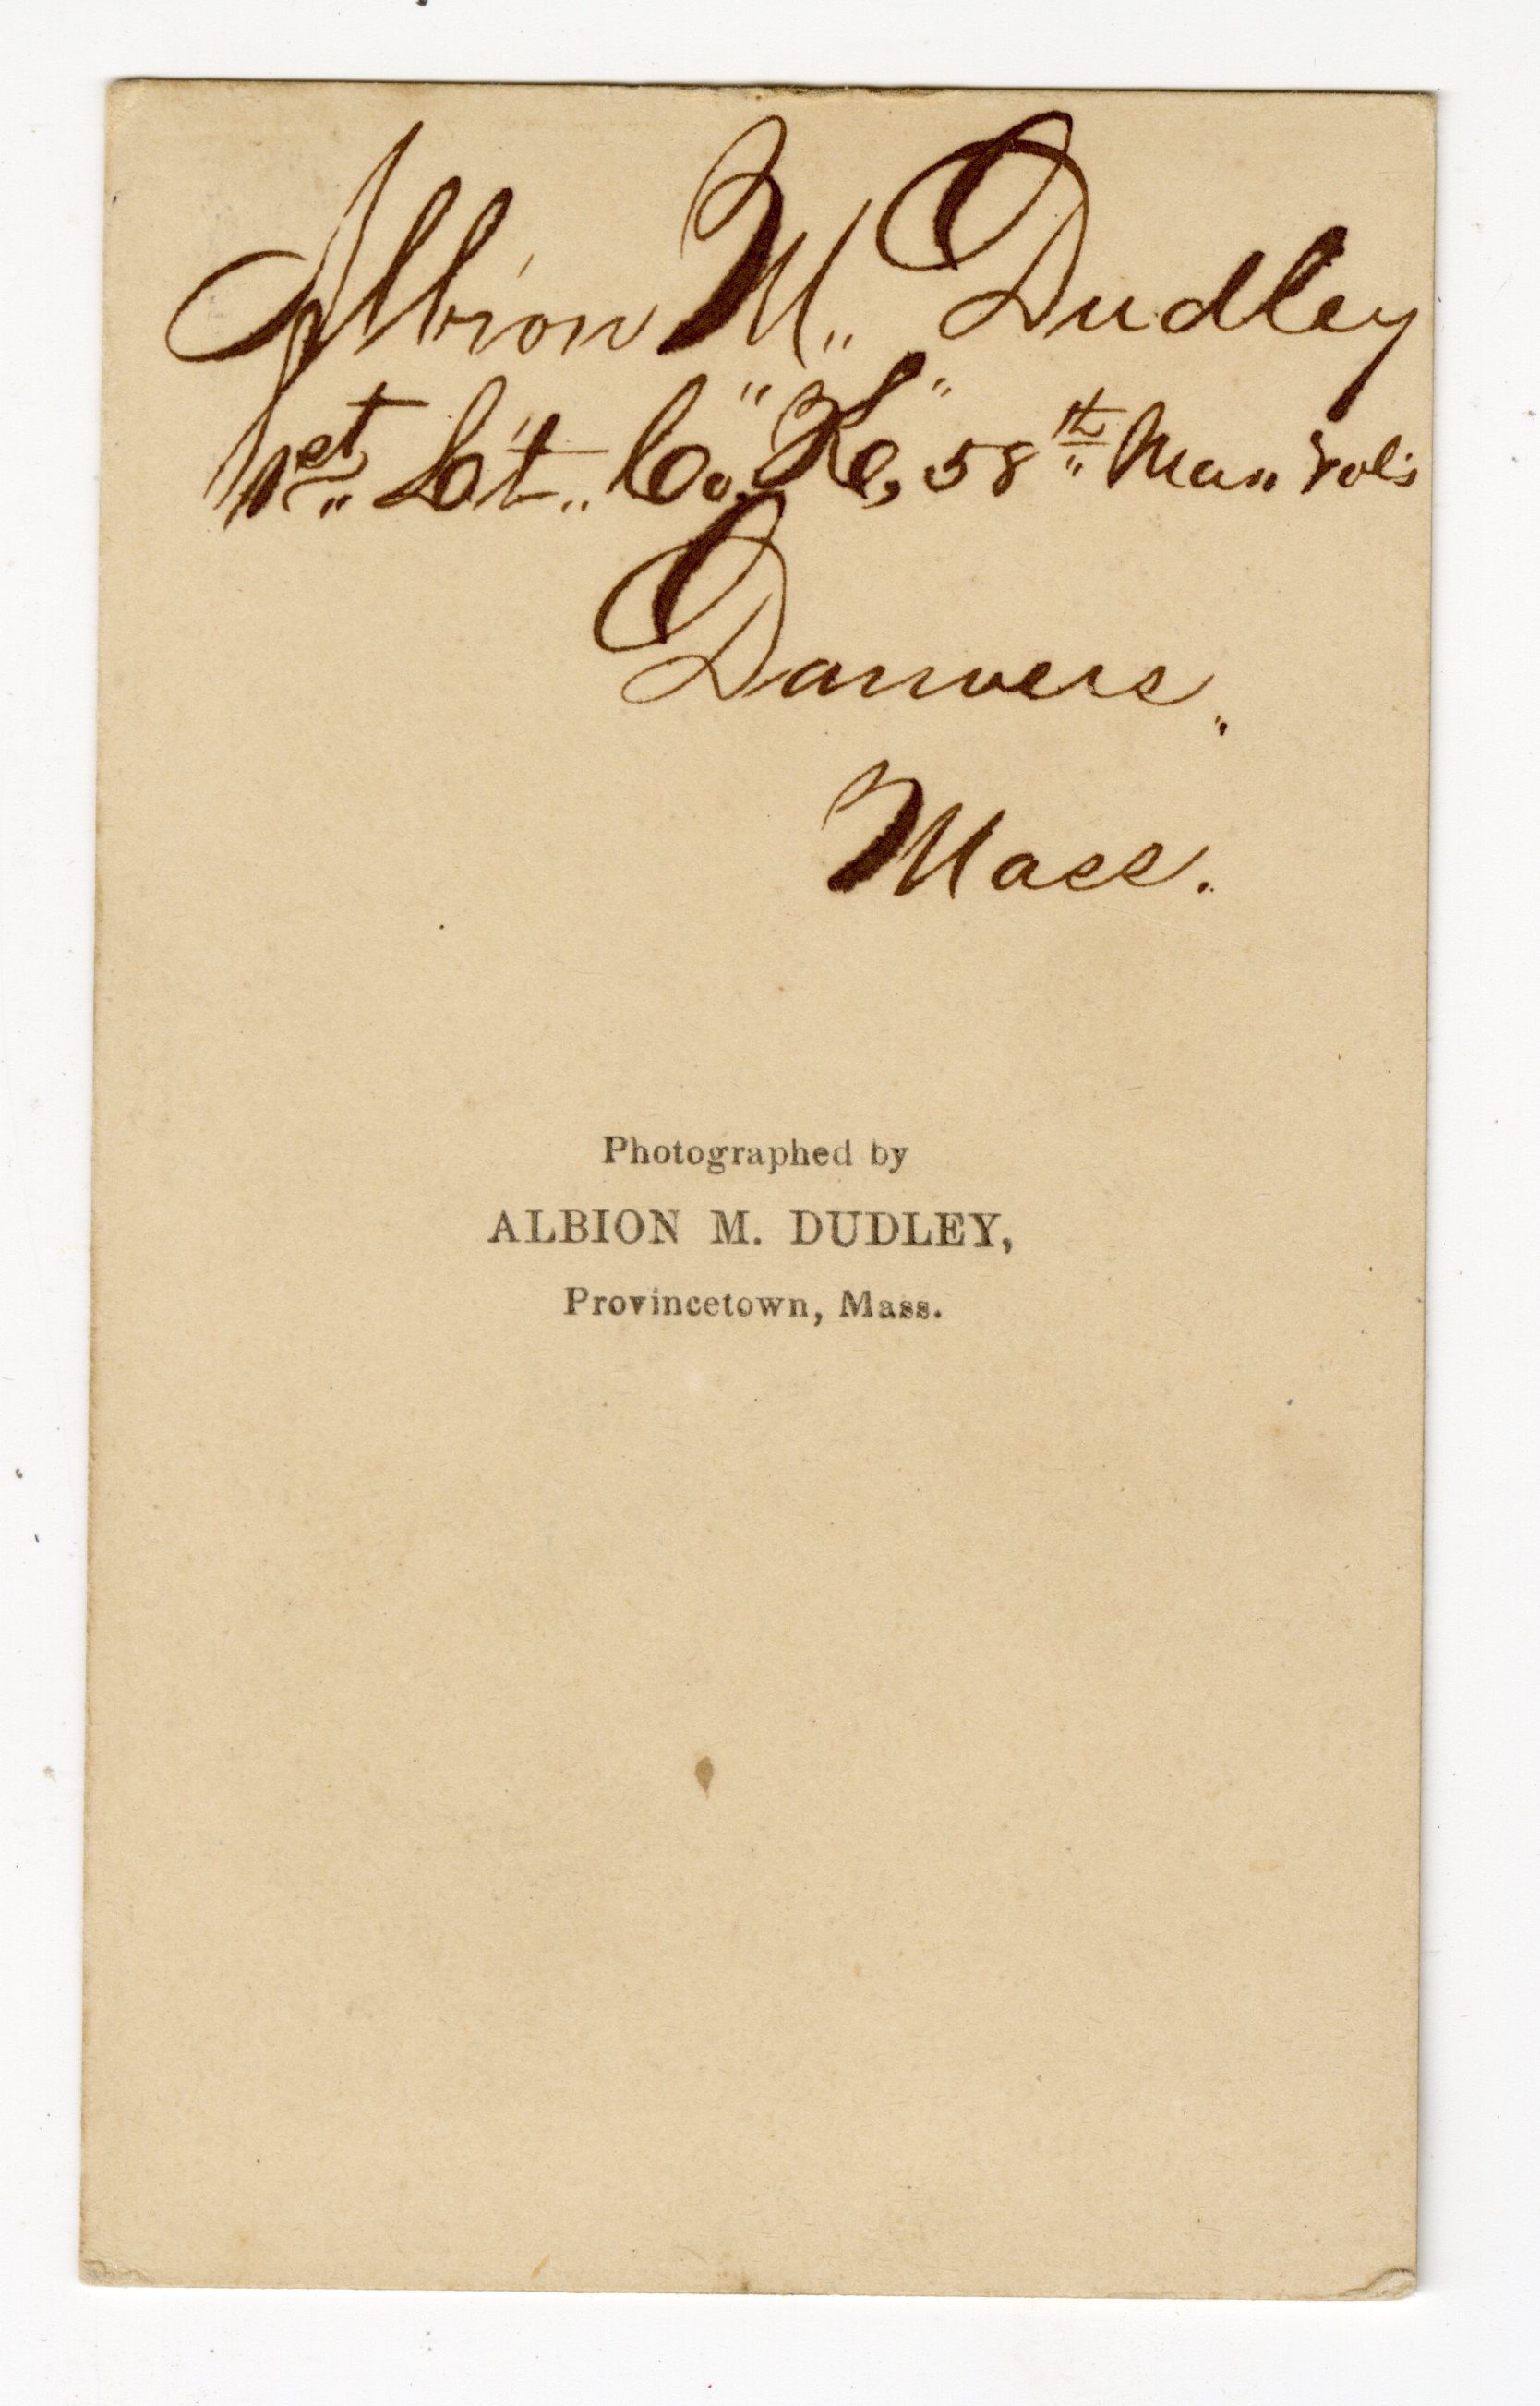 Albion M. Dudley
1st Lt. Co. "K", 58th Mass Vols
Danvers,
Mass.
Photographed by
ALBION M. DUDLEY,
Provincetown, Mass.